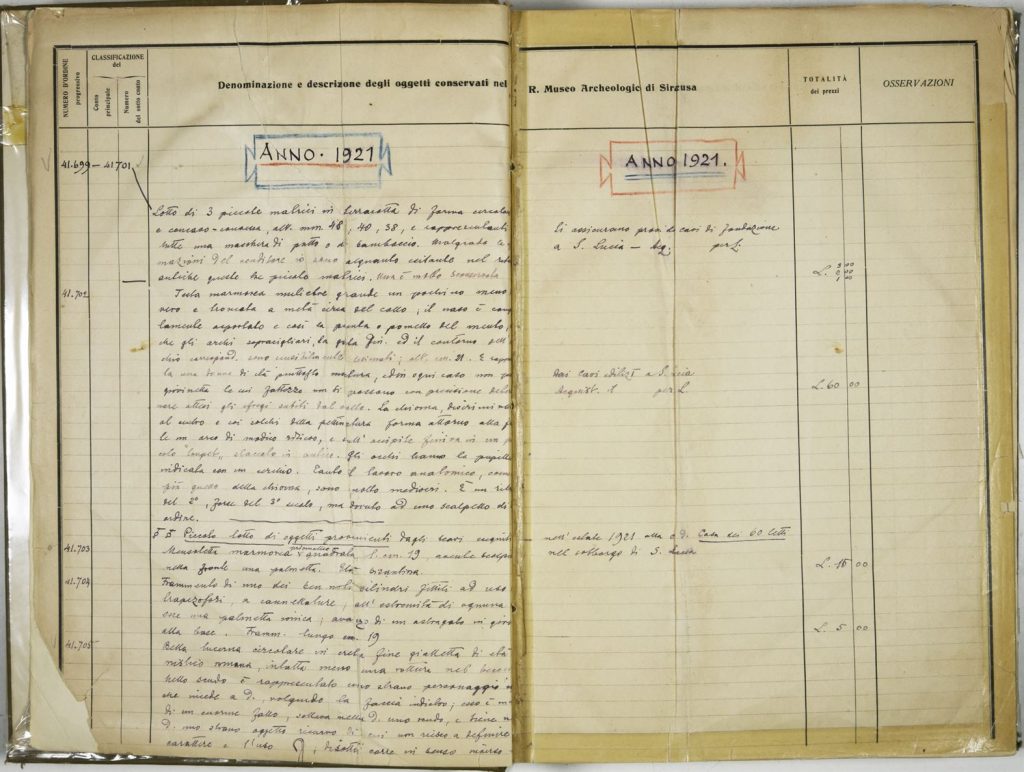 NUMERO D'ORDINE progressivo
CLASSIFICAZIONE del
Conto principale
Numero del sotto conto
Denominazione e descrizone degli oggetti conservati nel
R. Museo Archeologic di Siracusa
TOTALITÀ dei prezzi
OSSERVAZIONI
ANNO. 1921
ANNO 1921.
41.699 — 41701
Lotto di 3 piccole matrici in terracotta di forma circolare
e concavo-convessa, alt. mm. 48, 40, 38, e rappresentanti
tutte una maschera di putto o di bamboccio. Malgrado le
mazioni del venditore io sono alquanto esitante nel
antiche queste tre piccole matrici. Una è molto
Si assicurano prov. di cavi di fondazione
a S. Lucia — Acq. per £.
L.
41.702
Testa marmorea muliebre grande un pochino meno
vero e troncata a metà circa del collo; il naso è
lamente asportato e così la punta o pometto del mento,
che gli archi sopracigliari, la gota ed il contorno dell'
chio corrispond. sono sensibilmente; alt. cm. 21. E
la una donna di età piuttosto matura, ed in ogni caso non
giovinetta le cui fattezze non si possono con precisione
nere attesi gli sfregi subiti dal volto. La chioma,
al centro e coi solchi della pettinatura forma attorno alla
le un arco di modico rilievo, e sull' occipite finisce in un
colo staccato in antico. Gli occhi hanno la pupilla
indicata con un cerchio. Tanto il lavoro anatomico, come
più quello della chioma, sono molto mediocri. È un
del 2°, forse del 3° secolo, ma dovuto ad uno scalpello di
ordine.
Dai cavi edilizi a S. Lucia
Acquist. per L
L. 60 00
Piccolo lotto di oggetti provenienti dagli scavi eseguiti
nell'estate 1921 alla c.d. Casa dei 60 letti
nel sobborgo di S. Lucia
41.703
Mensoletta marmorea prismatica quadrata l. cm. 19, avente
nella fronte una palmetta. Età bizantina.
L. 15 00
41.704
Frammento di uno dei ben noti cilindri fittili ad uso
trapezofori, a cannellature, all' estremità di ognuna
una palmetta ionica; avanzo di un astragalo in giro
alla base. Framm. lungo cm. 19
L. 5 00
41.705
Bella lucerna circolare in creta fine gialletta di età
romana, intatta meno una rottura nel becco
nello scudo è rappresentato uno strano personaggio
incede a D. volgendo la faccia indietro; esso è
di un enorme fallo, solleva nella D. uno e tiene
D. uno strano oggetto ricurvo di cui non riesco a definire
carattere e l'uso; disotto corre in senso inverso